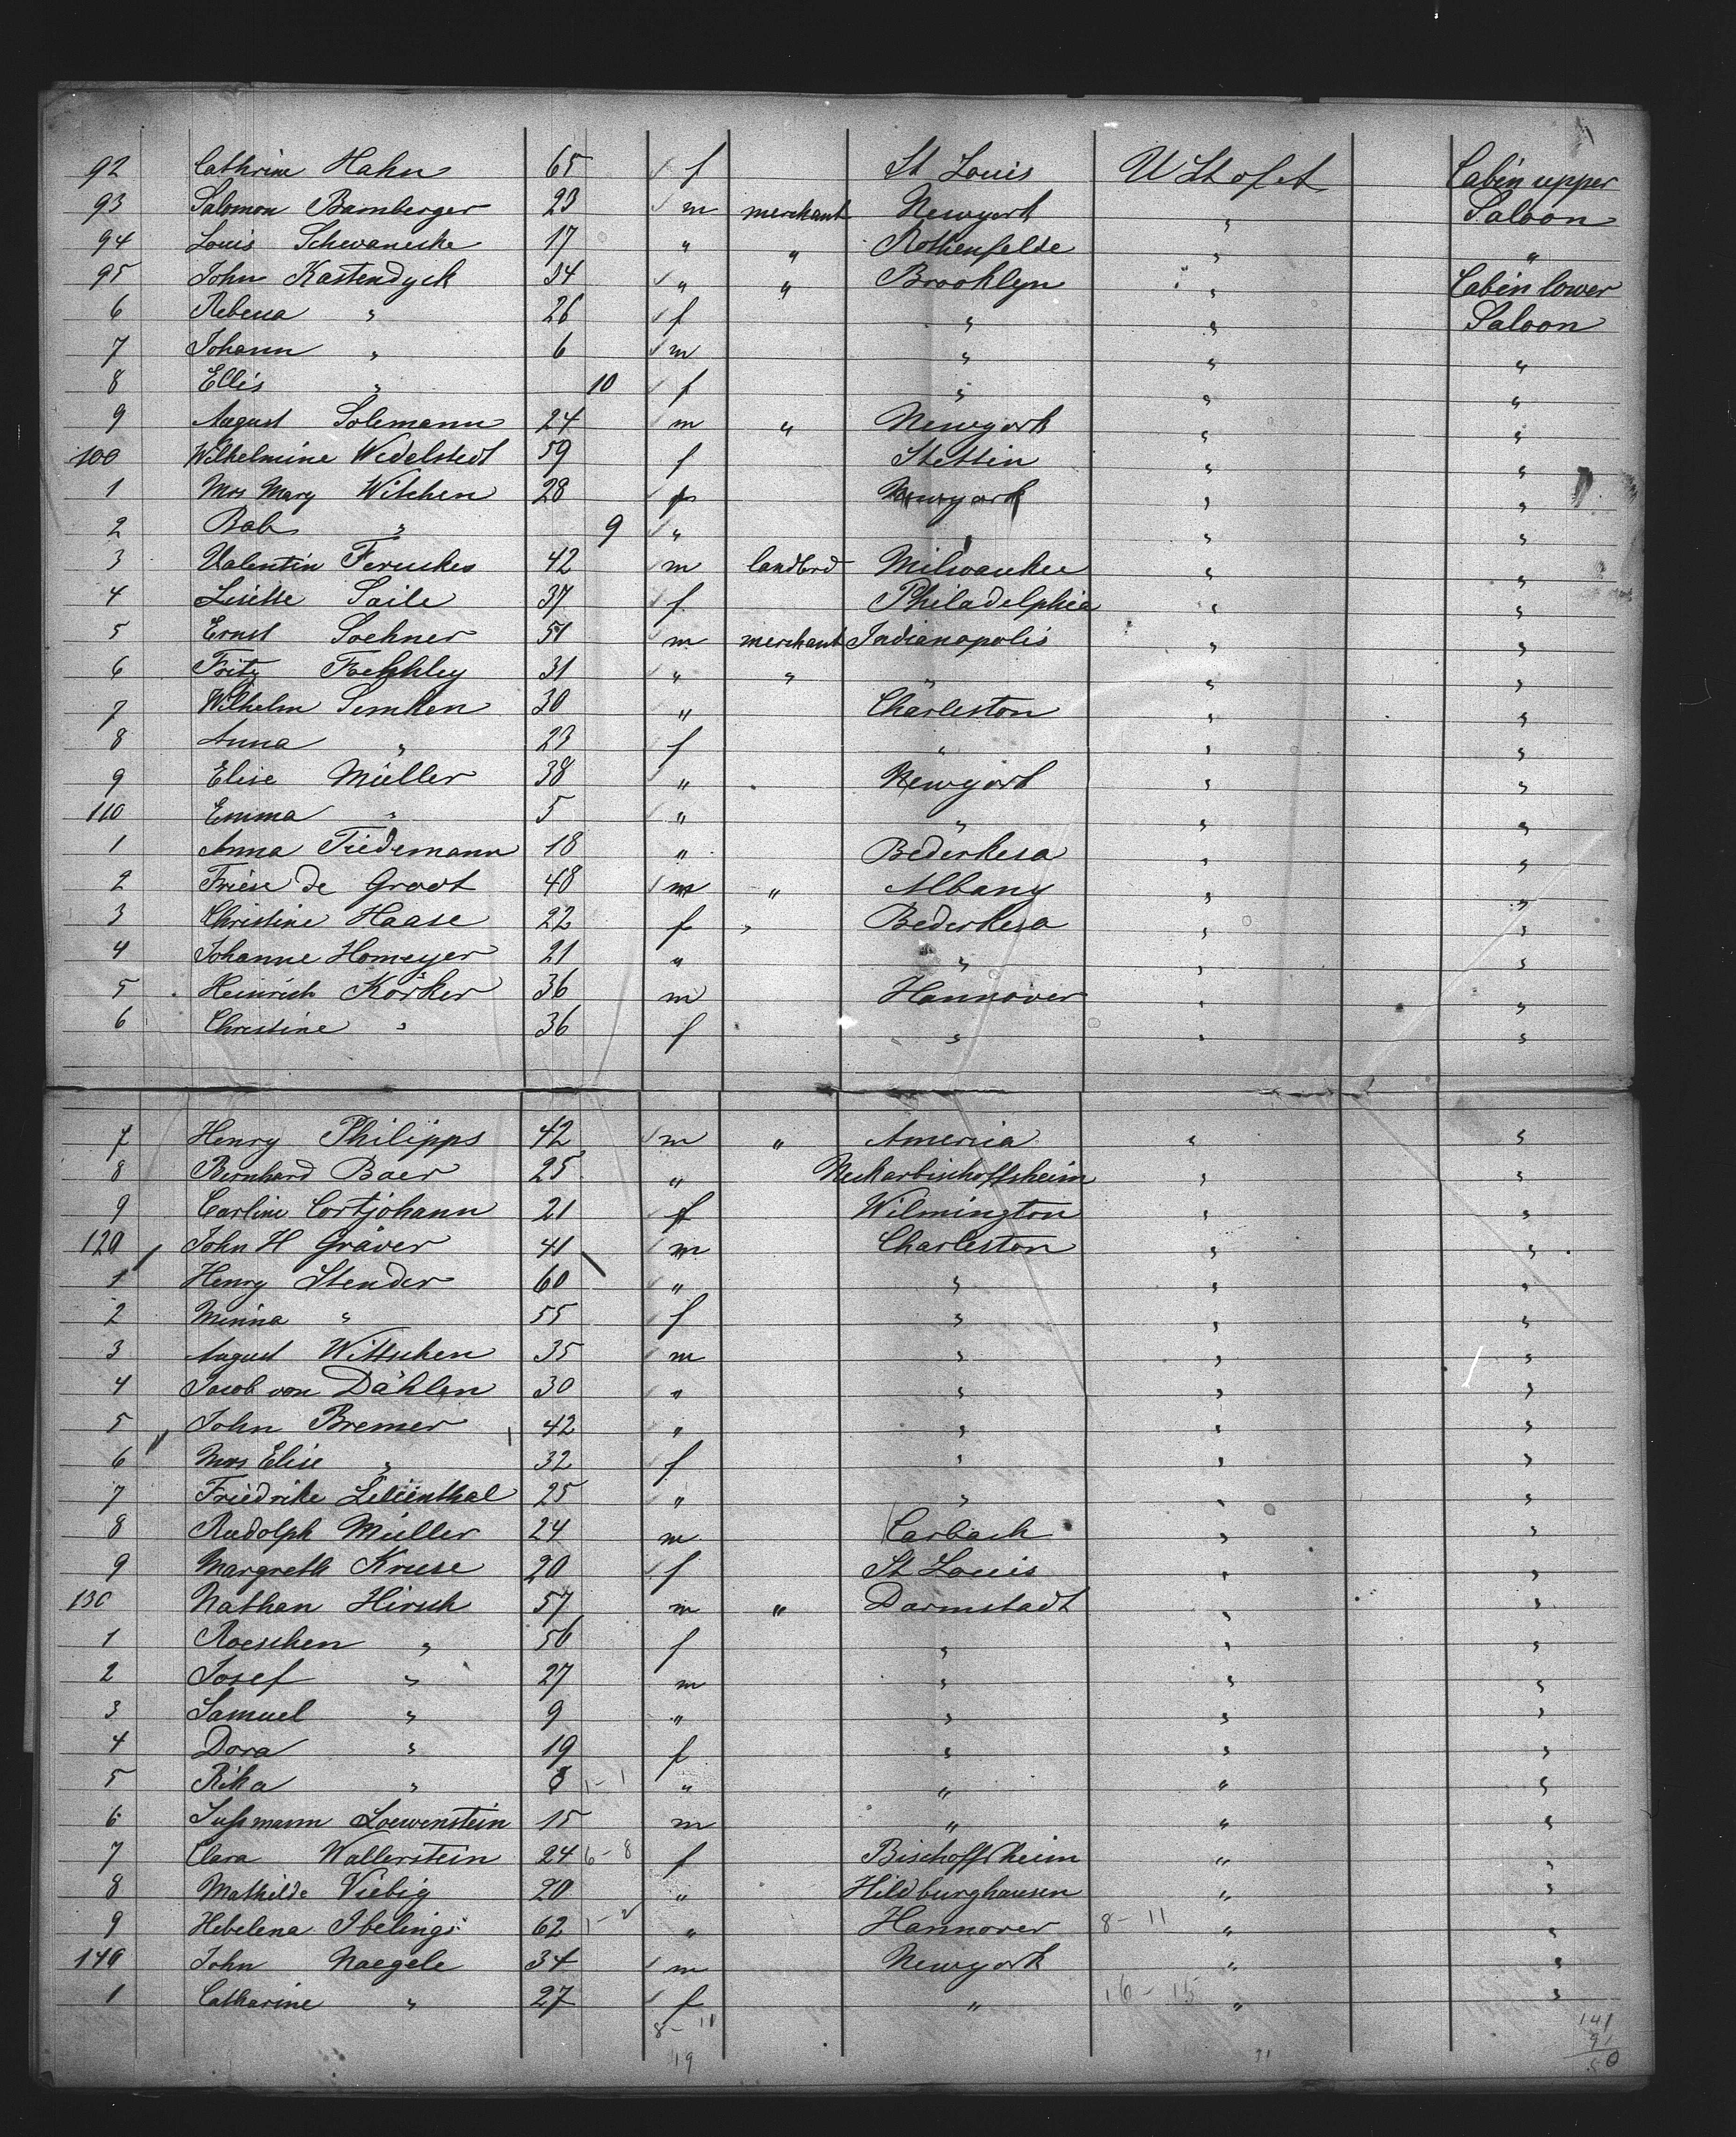 92 Cathrine Hahn 65 f St Louis U St of A Cabin upper
93 Salomon Bamberger 23 m merchant Newyork " Saloon
94 Louis Schwaneske 17 " " Rothenfelde " "
95 John Kastendyck 34 " " Brooklyn " Cabin lower
6 Rebecca " 26 f " " Saloon
7 Johann " 6 m " " "
8 Ellis " 10 f " " "
9 August Solemann 24 m " Newyork " "
100 Wilhelmine Wedelstedt 59 f Stettin " "
1 Mrs Mary Witchen 28 f Newyork " "
2 Bab " 9 " " "
3 Valentin Feruskes 42 m landlord Milwaukee " "
4 Lisette Saile 37 f Philadelphia " "
5 Ernst Soehner 51 m merchant Indianopolis " "
6 Fritz 31 " " " " "
7 Wilhelm Semken 30 " Charleston " "
8 Anna " 23 f " " "
9 Elise Müller 38 " Newyork " "
110 Emma " 5 " " " "
1 Anna Tiedemann 18 " Bederkesa " "
2 Friese de Groot 48 m " Albany " "
3 Christine Haase 22 f " Bederkesa " "
4 Johanne Homeyer 21 " " " "
5 Heinrich Körker 36 m Hannover " "
6 Christine " 36 f " " "
7 Henry Philipps 42 m " America " "
8 Bernhard Baer 25 " Neckarbischoffsheim " "
9 Carline Cortjohann 21 f Wilmington " "
120 John H Gräver 41 m Charleston " "
1 Henry Stender 60 " " " "
2 Minna " 55 f " " "
3 August Wittschen 35 m " " "
4 Jacob von Dählen 30 " " " "
5 John Bremer 42 " " " "
6 Mrs Elise " 32 f " " "
7 Friedrike Lilienthal 25 " " " "
8 Rudolph Müller 24 m Carbach " "
9 Margreth Kruse 20 f St Louis " "
130 Nathan Hirsch 57 m " Darmstadt " "
1 Roeschen " 56 f " " "
2 Josef " 27 m " " "
3 Samuel " 9 " " " "
4 Dora " 19 f " " "
5 Rika " 8 1-1 " " " "
6 Sussmann Loewenstein 15 m " " "
7 Clara Wallerstein 24 6-8 f Bischoffsheim " "
8 Mathilde Viebig 20 " Hildburghausen " "
9 Hebelena Ibelings 62 1-2 " Hannover 8-11 " "
140 John Naegele 34 m Newyork " "
1 Catharine " 27 f " 16-15 " "
8-11 141
19 31 91
50